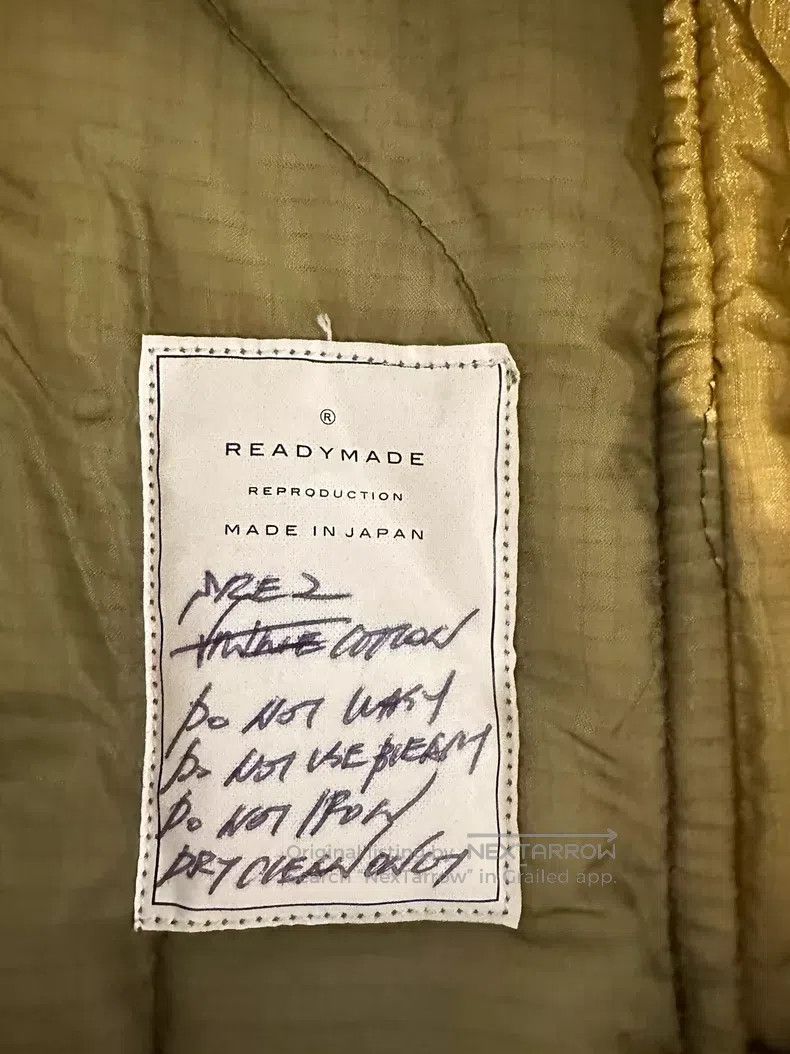 ®
READYMADE
REPRODUCTION
MADE IN JAPAN
SIZE 2
COTTON
DO NOT WASH
DO NOT USE BLEACH
DO NOT IRON
Original listing by NEXTARROW
DRY CLEAN ONLY
Search "NexTarrow" in Grailed app.